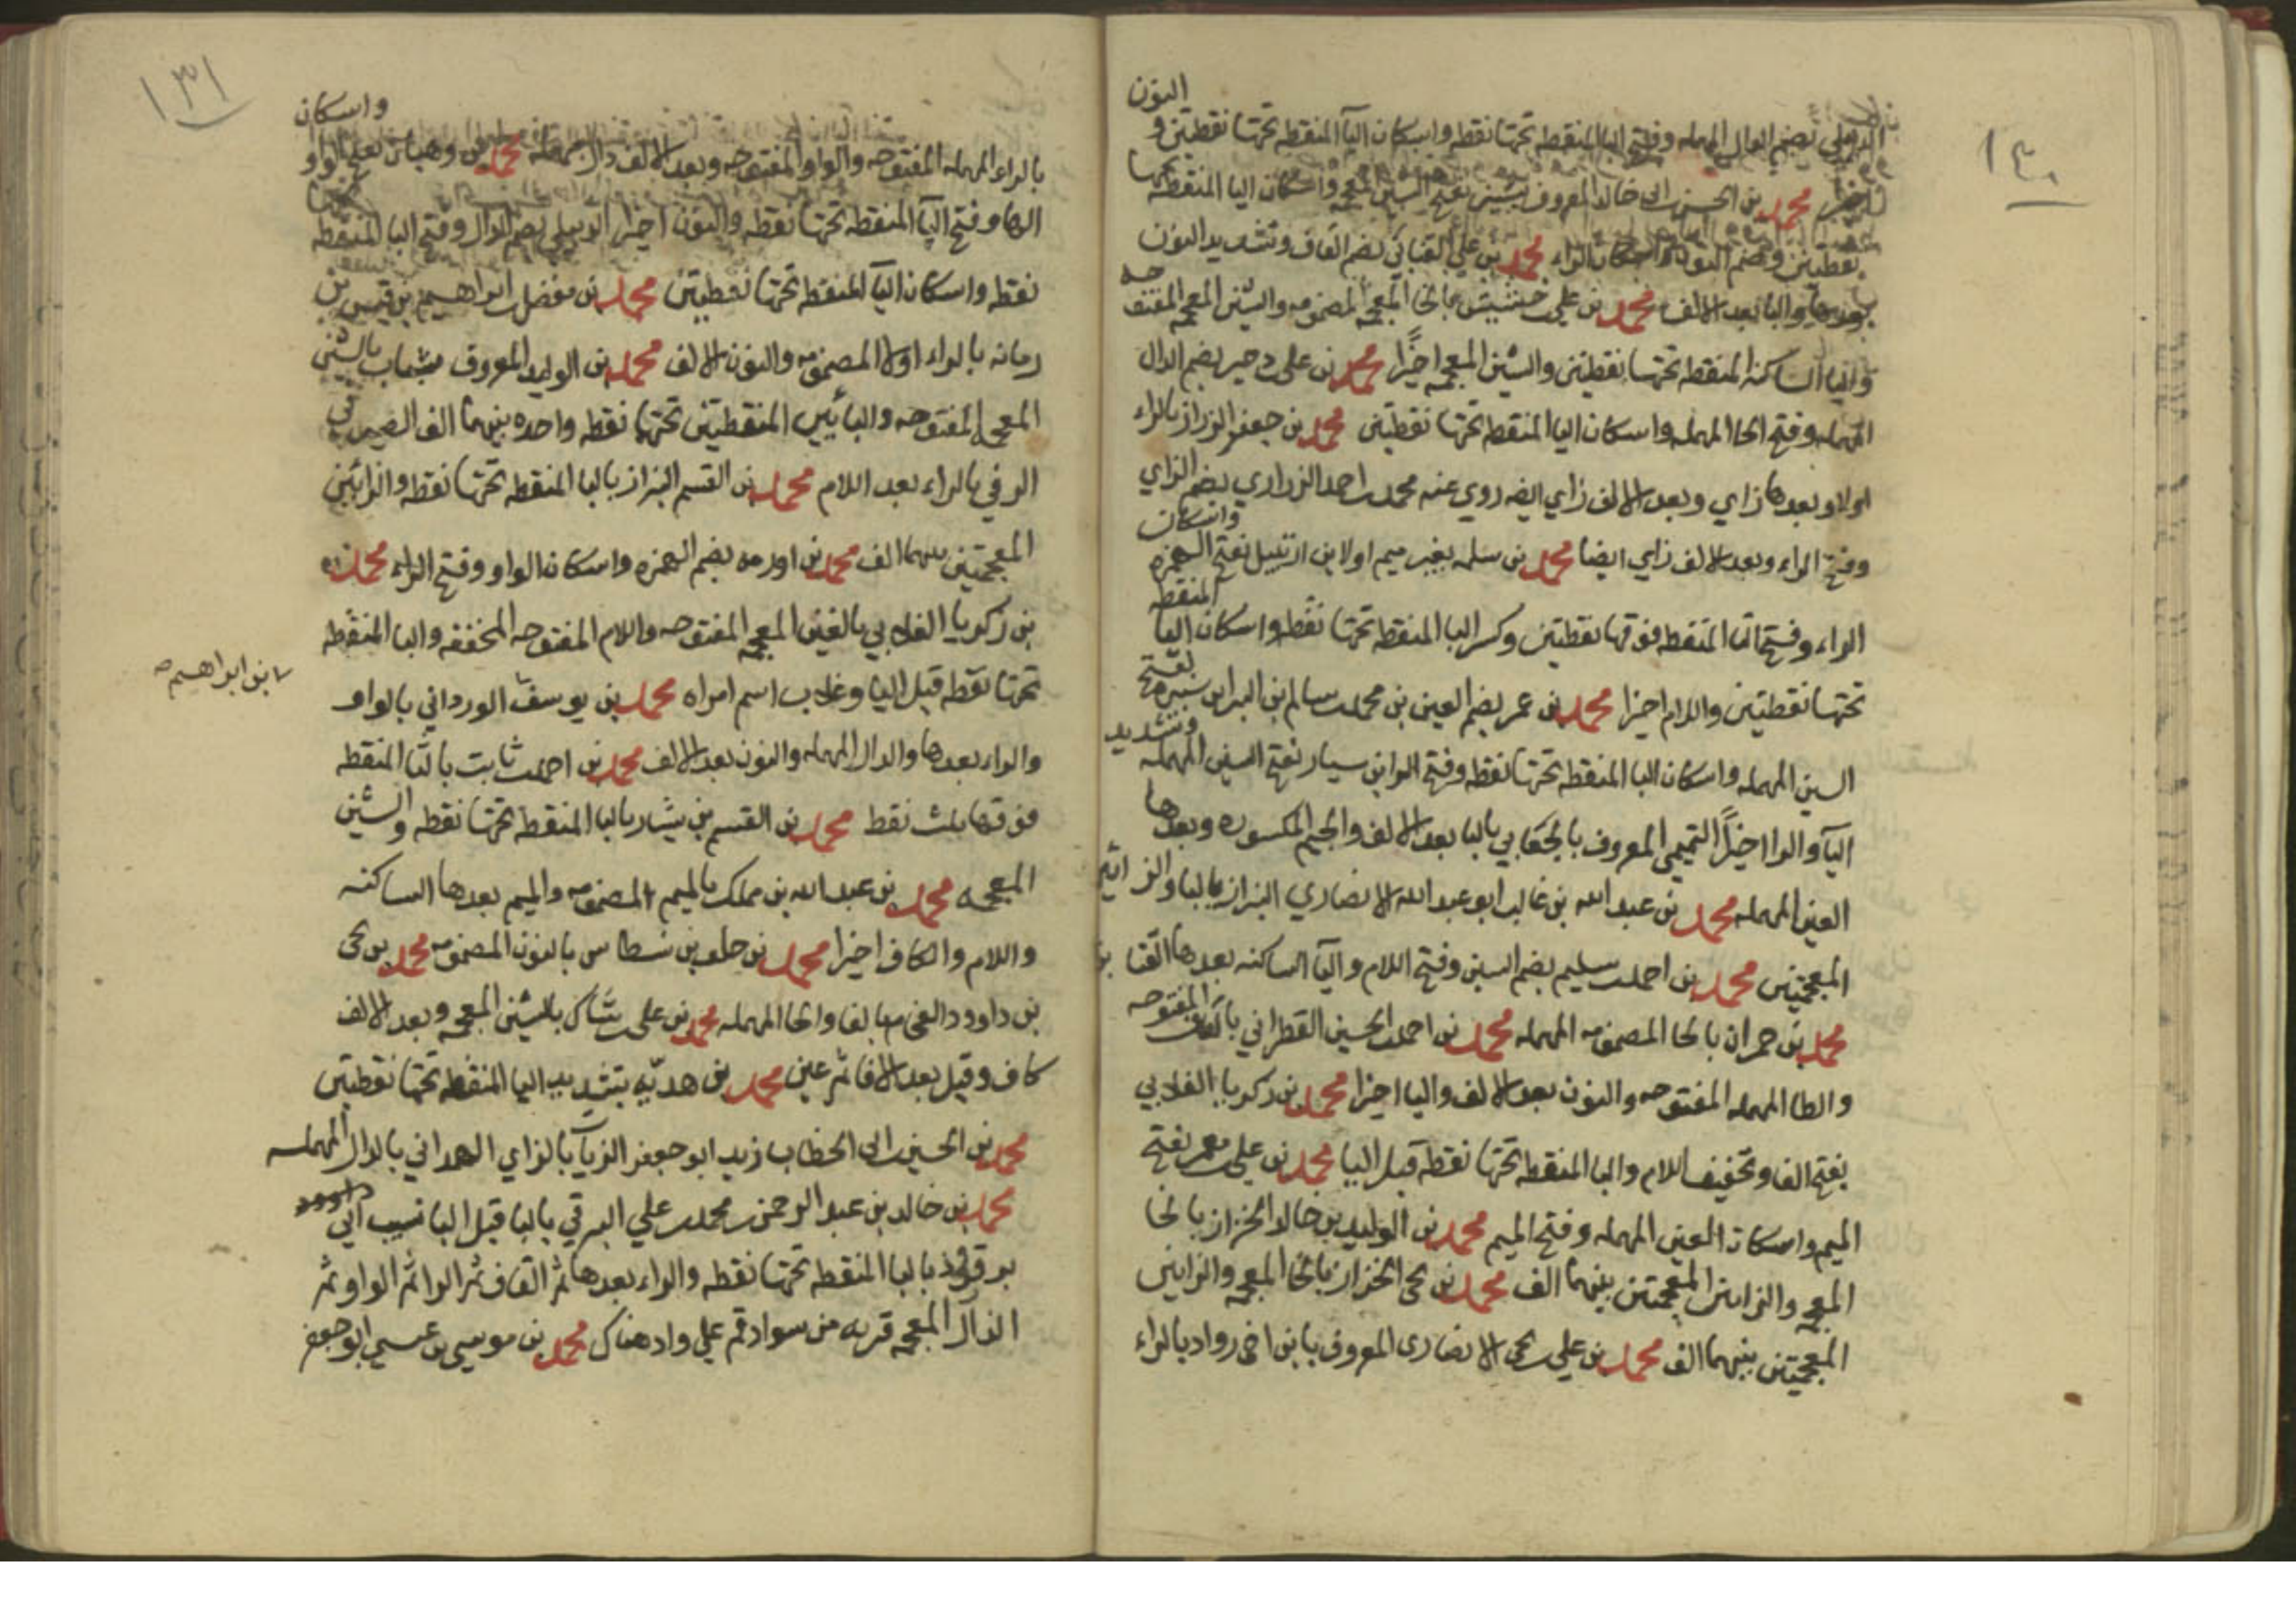 ١٣٠
النون
الدبيلي بضم الدال المهمله وفتح البا المنقطه تحتها نقطه واسكان اليآ المنقطه تحتها نقطتين و
اخيرا محمد بن الحسن بن ابى خالد المعروف بشينر بفتح الشين المعجمه واسكان اليا المنقطه تحتها
نقطتين وضم النون واسكان الراء محمد بن علي القنائي بضم القاف وتشديد النون
بعدها واليا بعد الالف محمد بن علي بن خشيش بالخا المعجمه المضمومه والشين المعجمه المفتوحه
واليا الساكنه المنقطه تحتها نقطتين والشين المعجمه اخيرًا محمد بن على بن دحير بضم الدال
المهمله وفتح الحا المهمله واسكان اليا المنقطه تحتها نقطتين محمد بن جعفر الرزاز بالراء
اولا وبعدها زاي وبعد الالف زاي ايضه روي عنه محمد بن احمد الزراري بضم الزاي
وفتح الراء وبعد الالف زاي ايضا محمد بن سلمه بغير ميم اولا بن ارتبيل بفتح الهمزه واسكان
الراء وفتح التا المنقطه فوقها نقطتين وكسر البا المنقطه تحتها نقطه واسكان اليا المنقطه
تحتها نقطتين واللام اخيرا محمد بن عمر بضم العين بن محمد بن سالم ابن البرا بن سبره بفتح
السين المهمله واسكان البا المنقطه تحتها نقطه وفتح الرا بن سيار بفتح السين المهمله وتشديد
اليآ والرا اخيرًا التميمي المعروف بالجعابي بالبا بعد الالف والجيم المكسوره وبعدها
العين المهمله محمد بن عبد الله بن غالب ابو عبد الله الانصاري البزاز بالبا والزائين
المعجمتين محمد بن احمد بن سليم بضم السين وفتح اللام واليآ الساكنه بعدها
محمد بن حمران بالحا المضمومه المهمله محمد بن احمد بن الحسين القطراني بالقاف المفتوحه
والطا المهمله المفتوحه والنون بعد الالف واليا اخيرا محمد بن زكريا الغلابي
بفتح الغا وتخفيف اللام والبا المنقطه تحتها نقطه قبل اليا محمد بن علي بن معمر بفتح
الميم واسكان العين المهمله وفتح الميم محمد بن الوليد بن خالد الخزاز بالخا
المعجمه والزايين المعجمتين بينهما الف محمد بن يحيى الخزاز بالخا المعجمه والزايين
المعجمتين بينهما الف محمد بن علي بن يحيى الانصارى المعروف بابن اخى رواد بالراء
١٣١
بالراء المهمله المفتوحه والواو المفتوحه وبعد الالف دال مهمله محمد بن وهبان بفتح الواو واسكان
الها وفتح اليآ المنقطه تحتها نقطه والنون اخيرا الدبيلي بضم الدال وفتح البا المنقطه تحتها
نقطه واسكان اليآ المنقطه تحتها نقطيتين محمد بن مفضل بن ابراهيم بن قيس بن
رمانه بالراء اولا المضمومه والنون الالف محمد بن الوليد المعروف بشباب بالشين
المعجمه المفتوحه والبائين المنقطتين تحتها نقطه واحده بينهما الف الصيرفى
الرقي بالراء بعد اللام محمد بن القسم البزاز بالبا المنقطه تحتها نقطه والزائين
المعجمتين بينهما الف محمد بن اورمه بضم الهمزه واسكان الواو وفتح الراء محمد
بن زكريا الغلابي بالغين المعجمه المفتوحه واللام المفتوحه المخففه والبا المنقطه
تحتها نقطه قبل اليا وغلاب اسم امراه محمد بن يوسف الورداني بالواو
بن ابراهيم صح
والراء بعدها والدال المهمله والنون بعد الالف محمد بن احمد بن ثابت بالثا المنقطه
فوقها بثلث نقط محمد بن القسم بن بشار بالبا المنقطه تحتها نقطه والشين
المعجمه محمد بن عبد الله بن مملك بالميم المضمومه والميم بعدها الساكنه
واللام والكاف اخيرا محمد بن خلف بن نسطاس بالنون المضمومه محمد بن يحيى
بن داوود الفحام بالفا والحا المهمله محمد بن على بن شاك بالشين المعجمه وبعد الالف
كاف وقيل بعد الالف ثم عين محمد بن هديّه بتشديد اليا المنقطه تحتها نقطتين
محمد بن الحسين بن ابى الخطاب زيد ابو جعفر الزيات بالزاي الهمداني بالدال المهمله
محمد بن خالد بن عبد الرحمن بن محمد بن علي البرقي بالبا قبل اليا نسب الى
برقروذ بالبا المنقطه تحتها نقطه والراء بعدها ثم القاف ثم الرا ثم الواو ثم
الذال المعجمه قريه من سواد قم علي واد هناك محمد بن موسى بن عيسي ابو جعفر